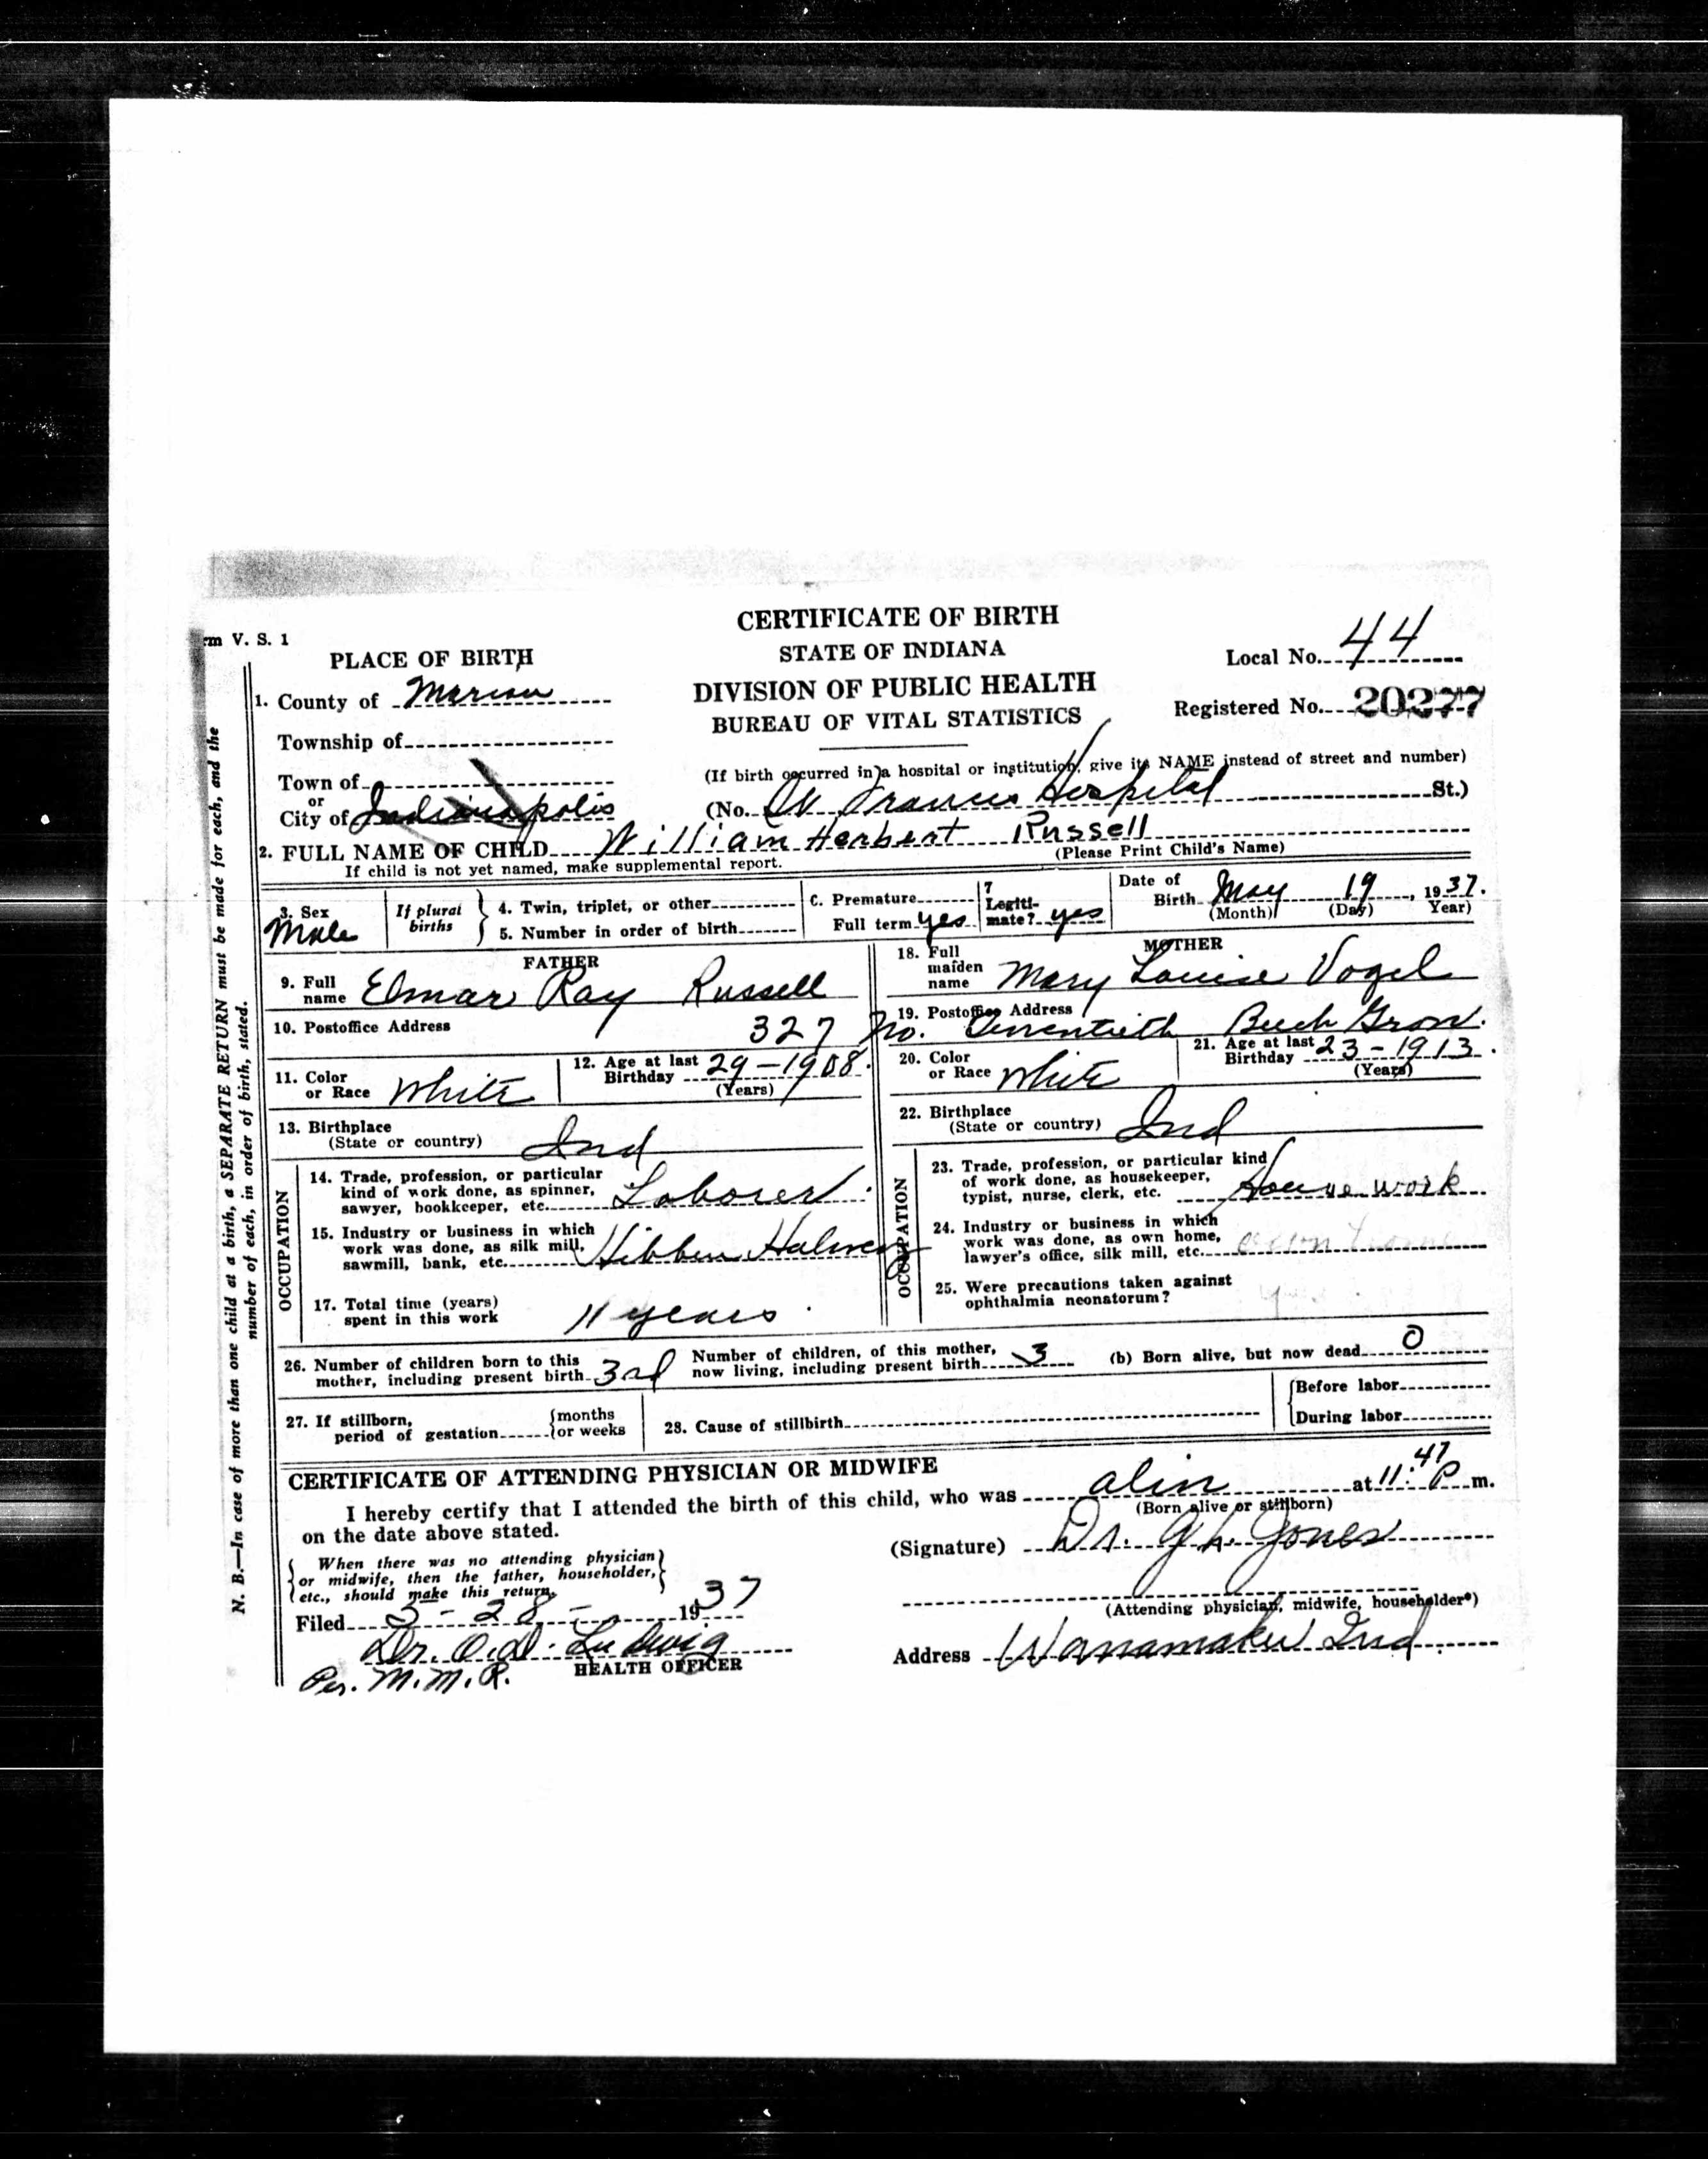 CERTIFICATE OF BIRTH
rm V. S. 1
STATE OF INDIANA
Local No. 44
PLACE OF BIRTH
DIVISION OF PUBLIC HEALTH
1. County of Marion
BUREAU OF VITAL STATISTICS
Registered No. 20277
Township of
Town of
(If birth occurred in a hospital or institution, give its NAME instead of street and number)
or
City of Indianapolis
(No. St Francis Hospital St.)
2. FULL NAME OF CHILD William Herbert Russell
If child is not yet named, make supplemental report. (Please Print Child's Name)
3. Sex Male
If plural births
4. Twin, triplet, or other
5. Number in order of birth
C. Premature
Full term yes
7 Legiti-
mate? yes
Date of
Birth May 19, 1937.
(Month) (Day) Year)
FATHER
9. Full
name Elmar Ray Russell
MOTHER
18. Full
maiden
name Mary Louise Vogel
10. Postoffice Address 327
19. Postoffice Address
No. Beech Grove.
11. Color
or Race White
12. Age at last
Birthday 29-1908.
(Years)
20. Color
or Race White
21. Age at last
Birthday 23-1913.
(Years)
13. Birthplace
(State or country) Ind
22. Birthplace
(State or country) Ind
OCCUPATION
14. Trade, profession, or particular
kind of work done, as spinner,
sawyer, bookkeeper, etc. Laborer
15. Industry or business in which
work was done, as silk mill,
sawmill, bank, etc. Hibben
17. Total time (years)
spent in this work 11 years
OCCUPATION
23. Trade, profession, or particular kind
of work done, as housekeeper,
typist, nurse, clerk, etc. House work
24. Industry or business in which
work was done, as own home,
lawyer's office, silk mill, etc. own home
25. Were precautions taken against
ophthalmia neonatorum?
26. Number of children born to this
mother, including present birth 3rd
Number of children, of this mother,
now living, including present birth 3
(b) Born alive, but now dead 0
27. If stillborn,
period of gestation
months
or weeks
28. Cause of stillbirth
Before labor
During labor
CERTIFICATE OF ATTENDING PHYSICIAN OR MIDWIFE
I hereby certify that I attended the birth of this child, who was alive at 11:47 P m.
(Born alive or stillborn)
on the date above stated.
When there was no attending physician
or midwife, then the father, householder,
etc., should make this return.
(Signature) Dr. G. L. Jones
(Attending physician, midwife, householder*)
Filed 5-28- 1937
Dr. O.D. Ludwig
HEALTH OFFICER
Per. M.M.R.
Address Wanamaker Ind.
N. B.—In case of more than one child at a birth, a SEPARATE RETURN must be made for each, and the
number of each, in order of birth, stated.